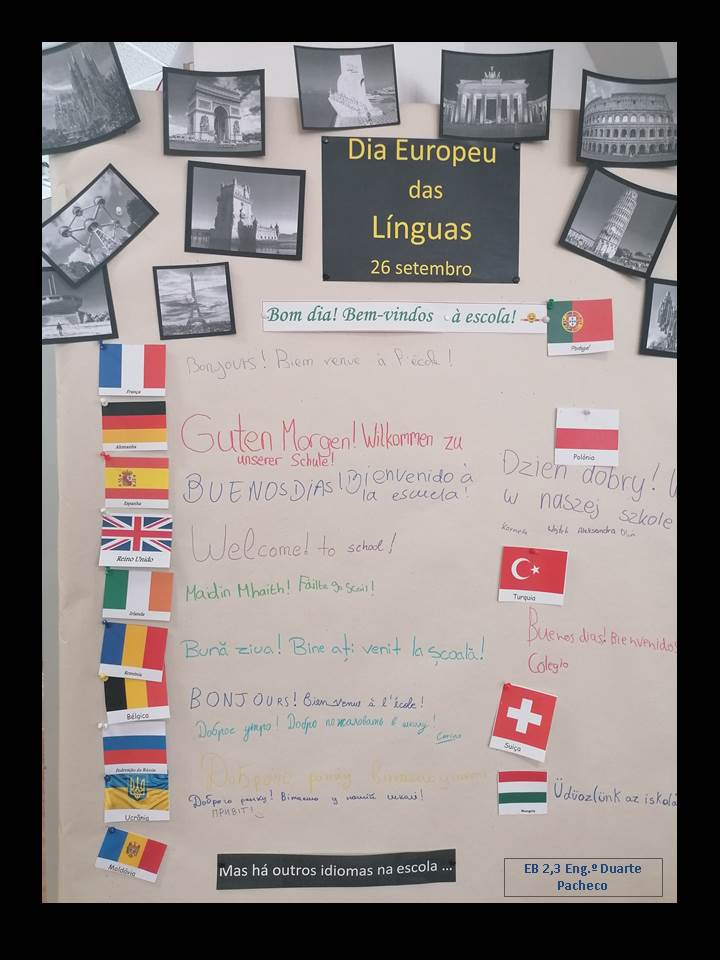 Dia Europeu
das
Línguas
26 setembro
Bom dia! Bem-vindos à escola!
Portugal
França
Bonjours! Biem venue à l'école!
Alemanha
Guten Morgen! Wilkommen zu
unserer Schule!
Espanha
BUENOS DIAS! Bienvenido à
la escuela!
Reino Unido
Welcome! to school!
Irlanda
Maidin Mhaith! Fáilte go Scoil!
Roménia
Bună ziua! Bine ați venit la școală!
Bélgica
BONJOURS! Bien venue à l'école!
Доброе утро! Добро пожаловать в школу!
Federação da Rússia
Ucrânia
Доброго ранку! Вітаємо у нашій школі!
ПРИВІТ!
Moldávia
Polónia
Dzień dobry!
w naszej szkole
Kornela Wojtek Aleksandra
Turquia
Buenos dias! Bienvenidos
Colegio
Suiça
Hungria
Üdvözlünk az iskolá
Mas há outros idiomas na escola ...
EB 2,3 Eng.º Duarte
Pacheco